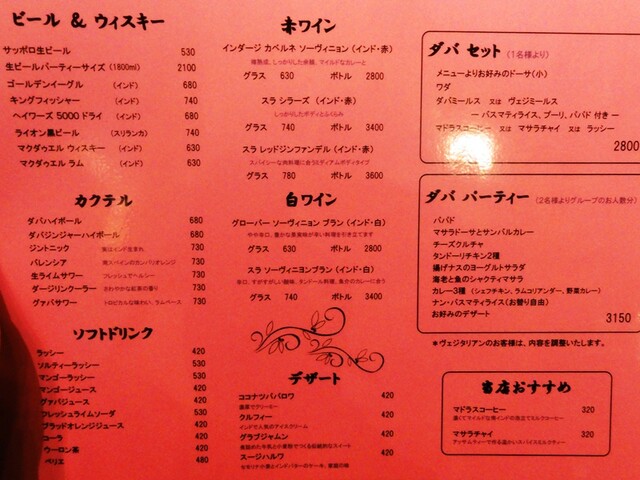 ビール & ウィスキー
サッポロ生ビール 530
生ビールパーティーサイズ (1800ml) 2100
ゴールデンイーグル (インド) 680
キングフィッシャー (インド) 740
ヘイワーズ 5000 ドライ (インド) 740
ライオン黒ビール (スリランカ) 740
マクダゥエル ウィスキー (インド) 630
マクダゥエル ラム (インド) 630
カクテル
ダバハイボール 680
ダバジンジャーハイボール 680
ジントニック 730
バレンシア 南スペインのカンパリオレンジ 730
生ライムサワー フレッシュでヘルシー 730
ダージリンクーラー さわやかな紅茶の香り 730
グァバサワー トロピカルな味わい、ラムベース 730
ソフトドリンク
ラッシー 420
ソルティーラッシー 530
マンゴーラッシー 530
マンゴージュース 420
グァバジュース 420
フレッシュライムソーダ 530
ブラッドオレンジジュース 420
コーラ 420
ウーロン茶 420
ペリエ 480
赤ワイン
インダージ カベルネ ソーヴィニョン (インド・赤)
グラス 630 ボトル 2800
スラ シラーズ (インド・赤)
しっかりしたボディとふくらみ
グラス 740 ボトル 3400
スラ レッドジンファンデル (インド・赤)
スパイシーな肉料理に合うミディアムボディタイプ
グラス 780 ボトル 3600
白ワイン
グローバー ソーヴィニョン ブラン (インド・白)
やや辛口、豊かな果実味が辛い料理を引き立てます
グラス 630 ボトル 2800
スラ ソーヴィニヨンブラン (インド・白)
辛口、すがすがしい酸味、タンドール料理、魚介のカレーに合う
グラス 740 ボトル 3400
デザート
ココナツババロワ 420
濃厚でクリーミー
クルフィー 420
インドで人気のアイスクリーム
グラブジャムン 420
スージハルワ 420
ダバ セット (1名様より)
メニューよりお好みのドーサ(小)
ワダ
ダバミールス 又は ヴェジミールス
ー バスマティライス、プーリ、パパド 付き ー
マドラスコーヒー 又は マサラチャイ 又は ラッシー
2800
ダバ パーティー (2名様よりグループのお人数分)
パパド
マサラドーサとサンバルカレー
チーズクルチャ
タンドーリチキン2種
揚げナスのヨーグルトサラダ
海老と魚のシャクティマサラ
カレー3種 (シェフチキン、ラムコリアンダー、野菜カレー)
ナン・バスマティライス(お替り自由)
お好みのデザート
3150
＊ヴェジタリアンのお客様は、内容を調整いたします。
当店おすすめ
マドラスコーヒー 320
マサラチャイ 320
アッサムティーで作る温かいスパイスミルクティー